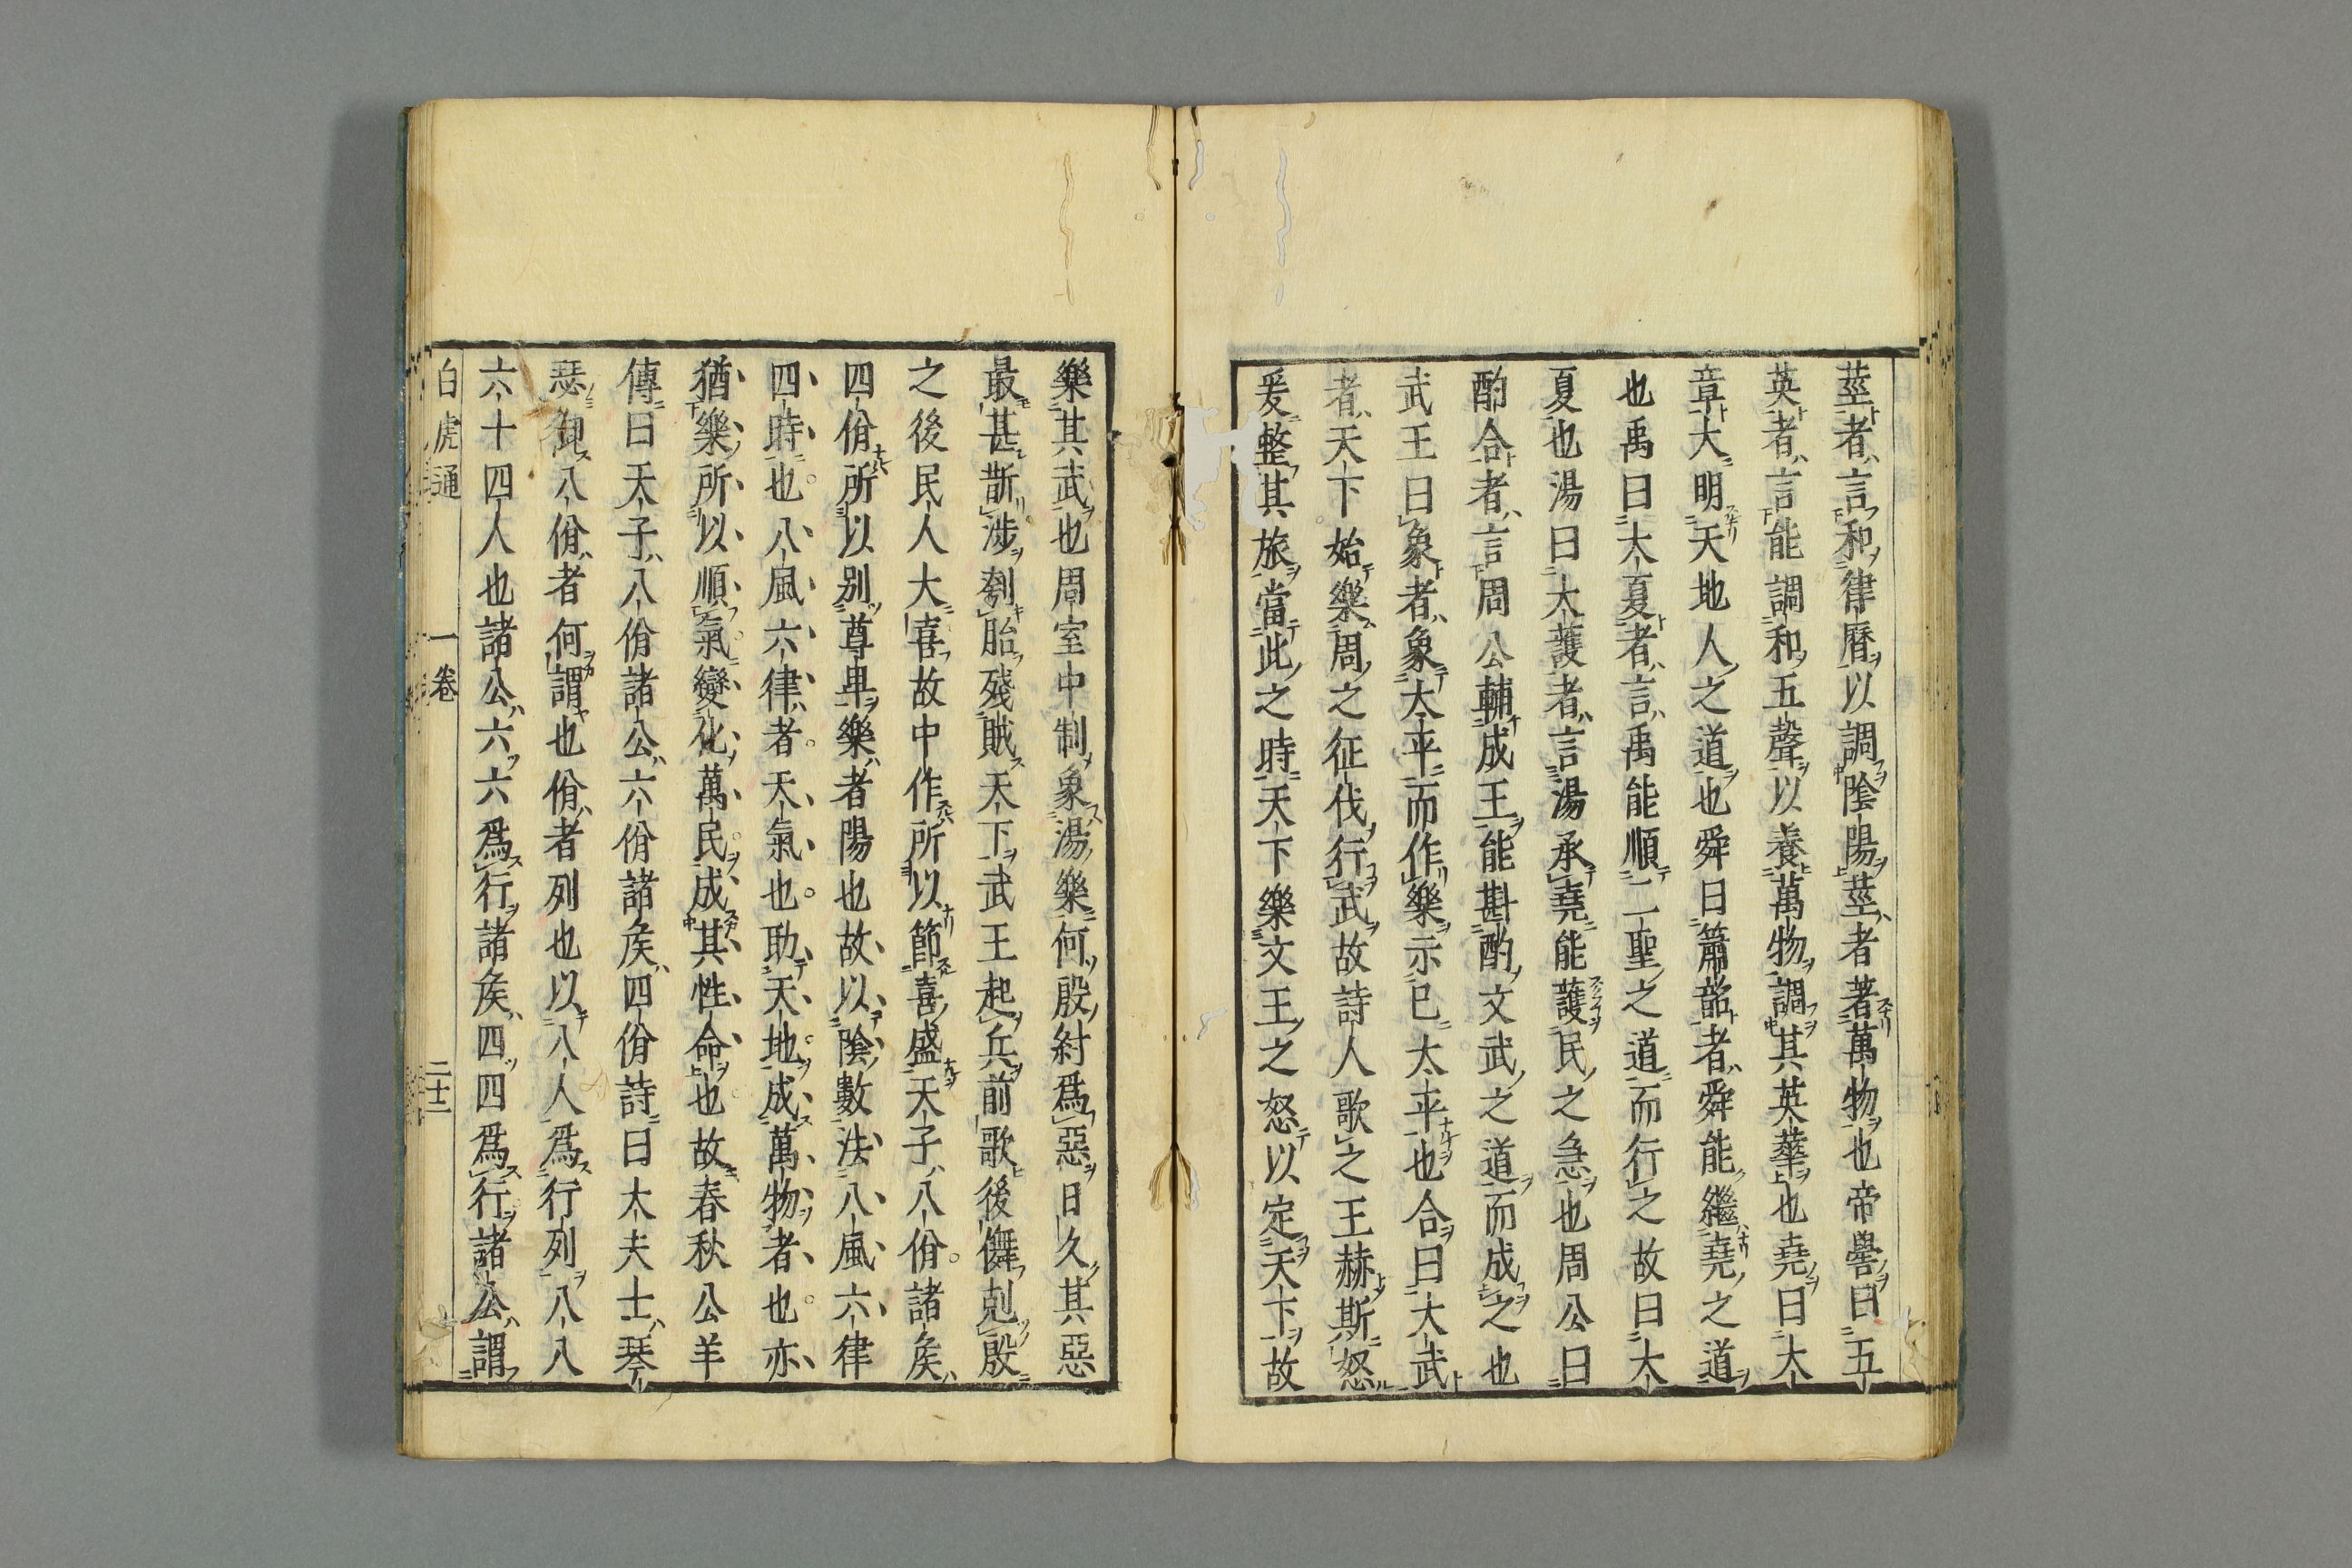 莖者言和律曆以調陰陽莖者著萬物也帝嚳曰五
英者言能調和五聲以養萬物調其英華也堯曰大
章大明天地人之道也舜曰簫韶者舜能繼堯之道
也禹曰大夏者言禹能順二聖之道而行之故曰大
夏也湯曰大護者言湯承堯能護民之急也周公曰
酌合者言周公輔成王能斟酌文武之道而成之也
武王曰象者象太平而作樂示已太平也合曰大武
者天下始樂周之征伐行武故詩人歌之王赫斯怒
爰整其旅當此之時天下樂文王之怒以定天下故
樂其武也周室中制象湯樂何殷紂爲惡日久其惡
最甚斮涉刳胎殘賊天下武王起兵前歌後儛剋殷
之後民人大喜故中作所以節喜盛天子八佾諸矦
四佾所以別尊卑樂者陽也故以陰數法八風六律
四時也八風六律者天氣也助天地成萬物者也亦
猶樂所以順氣變化萬民成其性命也故春秋公羊
傳曰天子八佾諸公六佾諸矦四佾詩曰大夫士琴
瑟御八佾者何謂也佾者列也以八人爲行列八八
六十四人也諸公六六爲行諸矦四四爲行諸公謂
白虎通 一卷 二十二